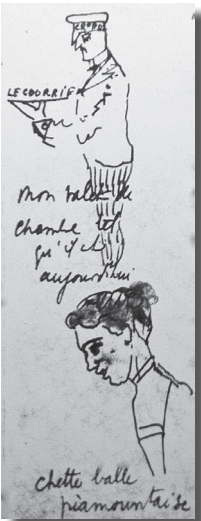 LE COURRIE
Mon valet de
chambe tel
qu'il est
aujourd'hui
chette balle
piamountaise